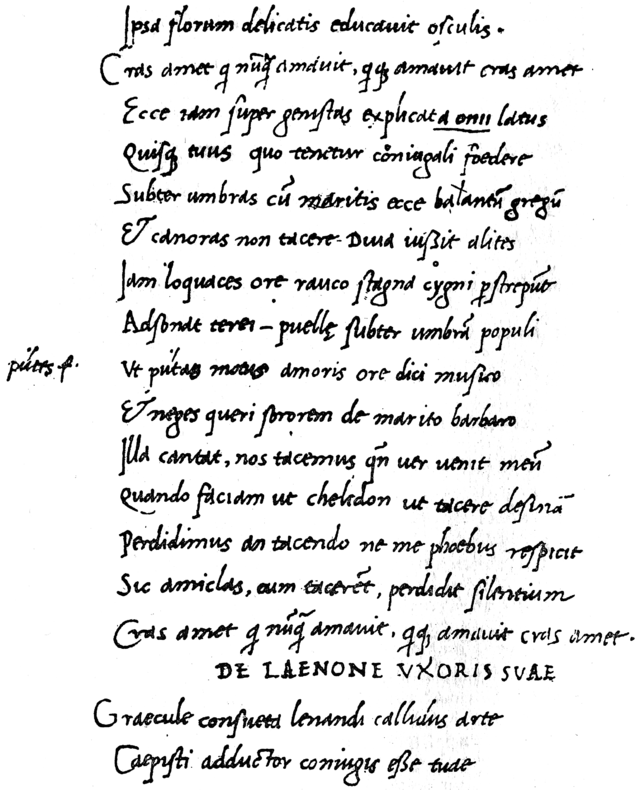 Ipsa florum delicatis educauit osculis.
Cras amet q̃ nũq̃ amauit, qq̃ amauit cras amet
Ecce iam super genistas explicat a onii latus
Quisq̨ tuus quo tenetur cõiugali foedere
Subter umbras cũ maritis ecce balantũ gregũ
Et canoras non tacere Diua iußit alites
Iam loquaces ore rauco stagna cygni pstrepũt
Adsonat terei puellę subter umbrã populi
putes f.
Vt putas motus amoris ore dici musico
Et neges queri sororem de marito barbaro
Illa cantat, nos tacemus qñ uer uenit meũ
Quando faciam ut chelidon ut tacere desinã
Perdidimus an tacendo ne me phoebus respicit
Sic amiclas, cum tacerẽt, perdidit silentium
Cras amet q̃ nũq̃ amauit, qq̃ amauit cras amet.
DE LAENONE VXORIS SVAE
Graecule consueta lenandi callidus arte
Caepisti adductor coniugis eße tuae